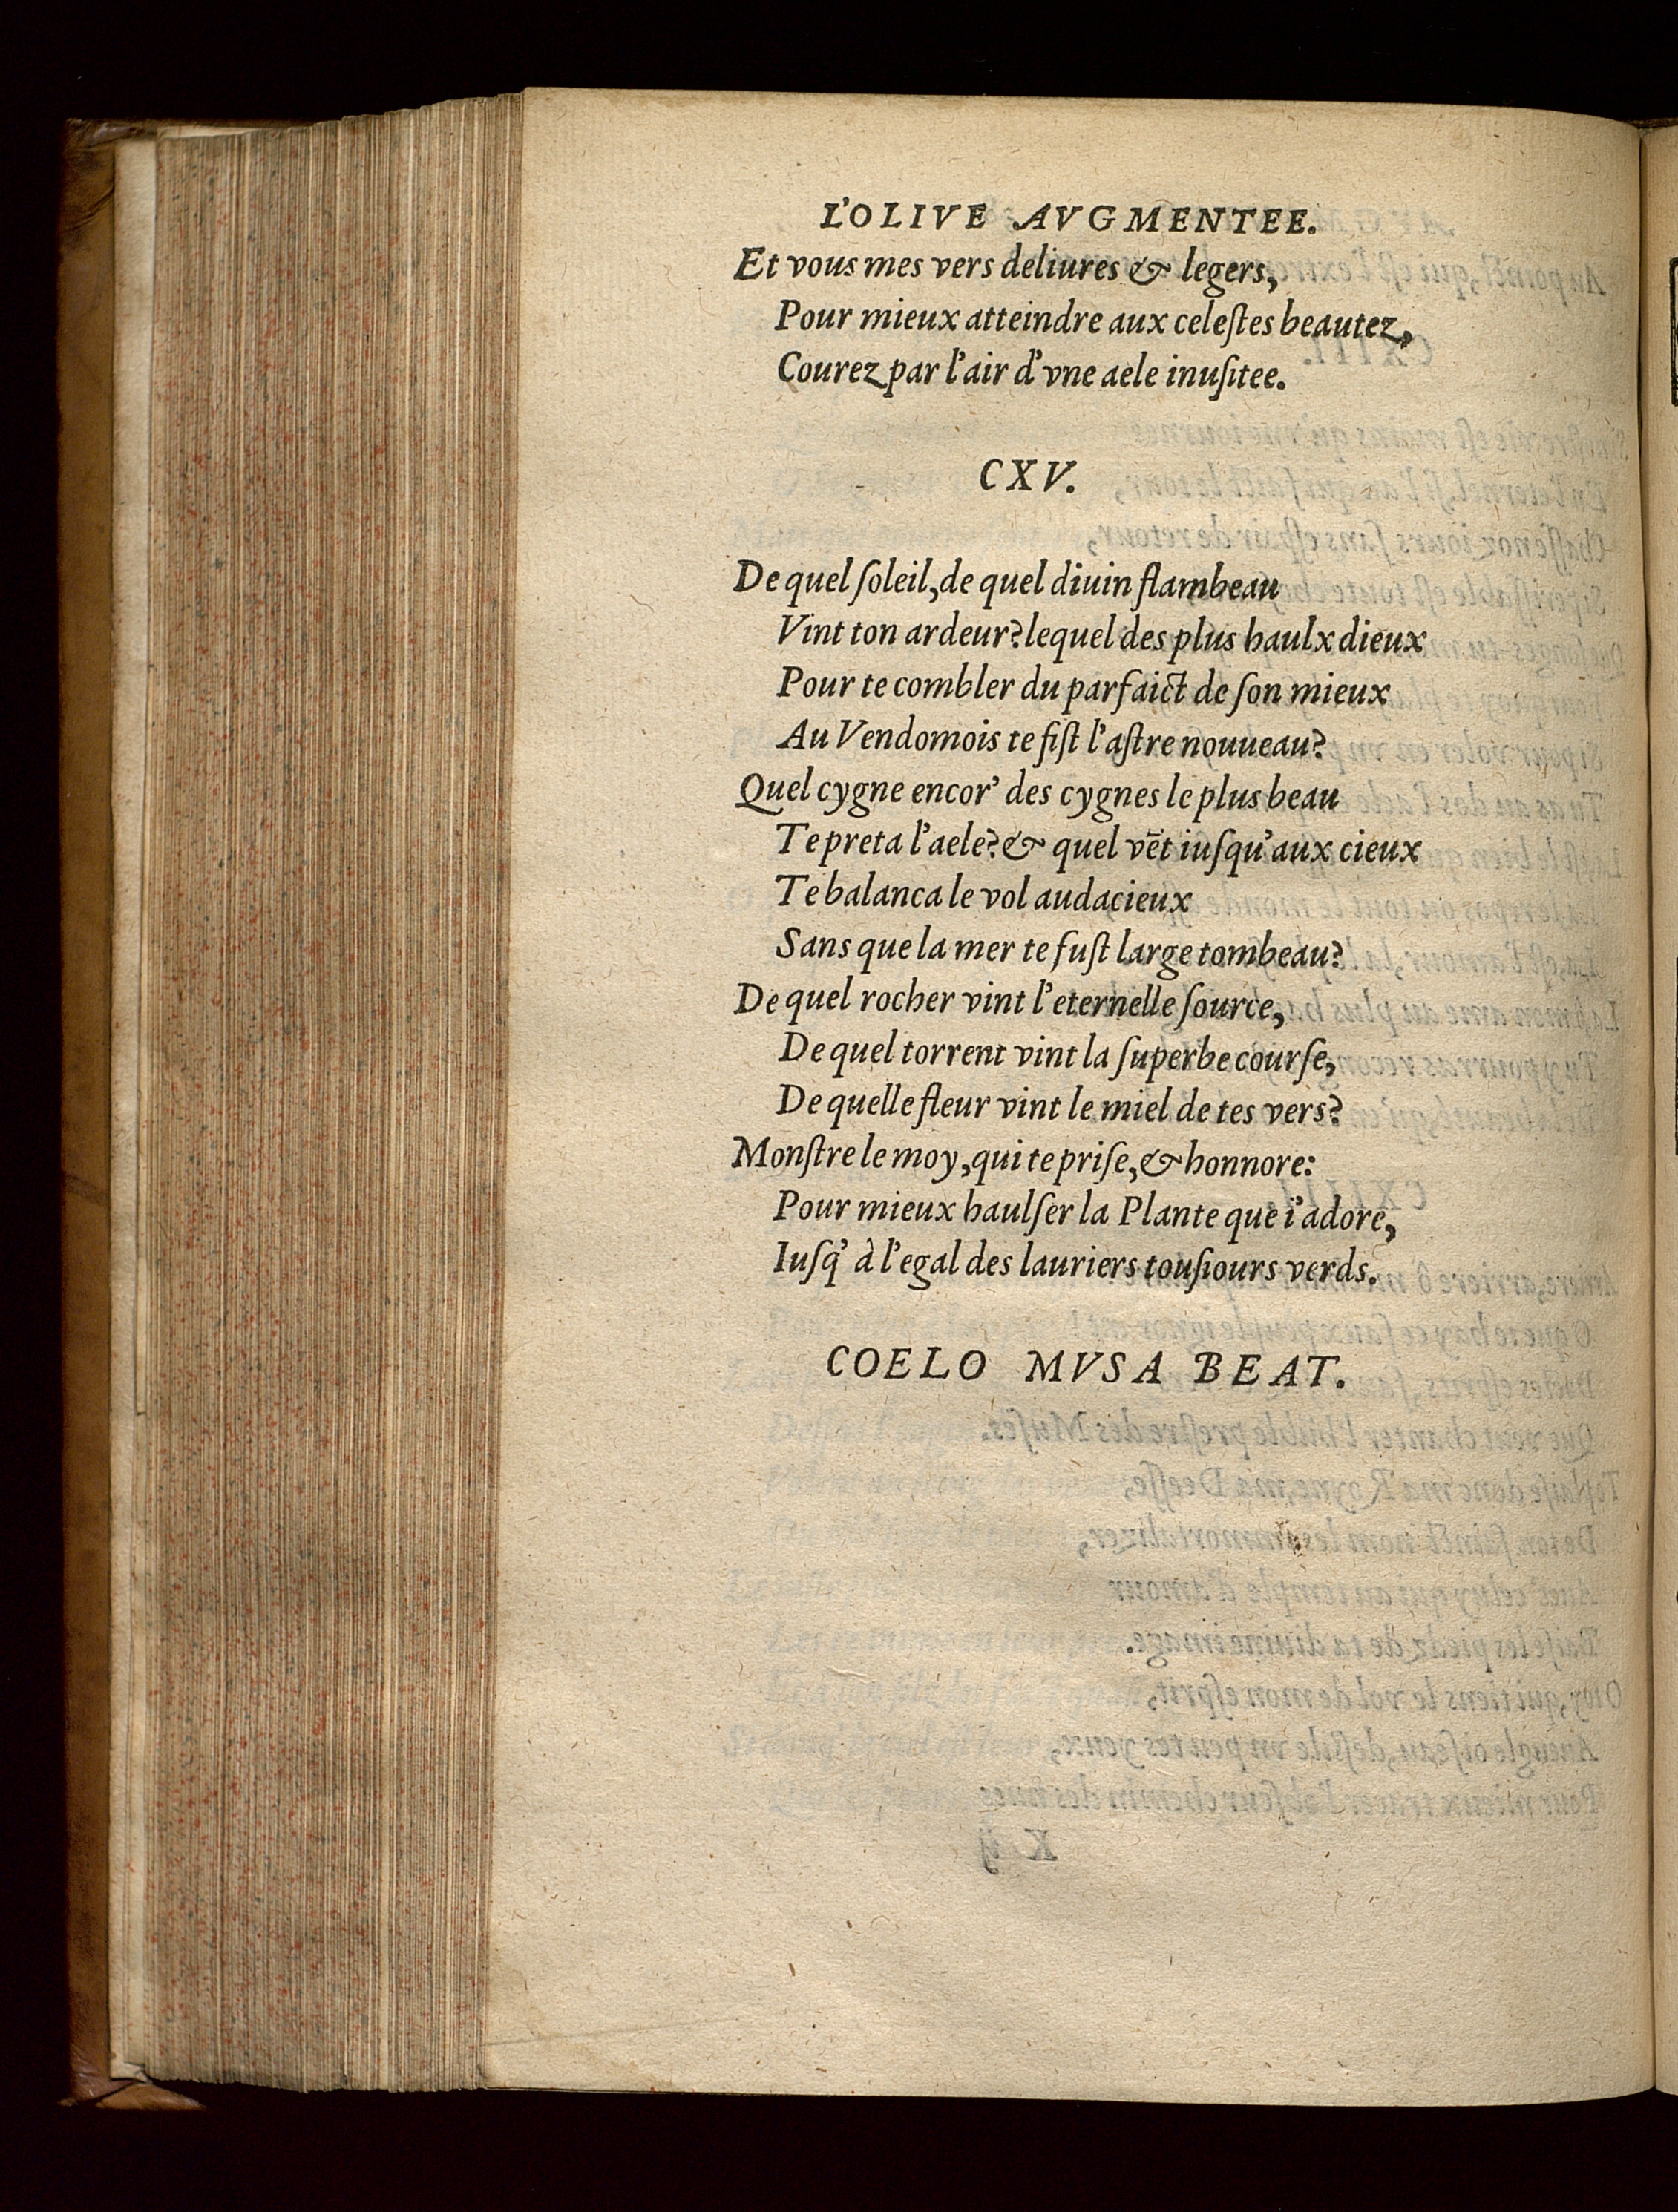 L'OLIVE AVGMENTEE.
Et vous mes vers deliures & legers,
Pour mieux atteindre aux celeſtes beautez,
Courez par l'air d'vne aele inuſitee.
CXV.
De quel ſoleil, de quel diuin flambeau
Vint ton ardeur? lequel des plus haulx dieux
Pour te combler du parfaict de ſon mieux
Au Vendomois te fiſt l'aſtre nouueau?
Quel cygne encor' des cygnes le plus beau
Te preta l'aele? & quel vēt iuſqu'aux cieux
Te balanca le vol audacieux
Sans que la mer te fuſt large tombeau?
De quel rocher vint l'eternelle ſource,
De quel torrent vint la ſuperbe courſe,
De quelle fleur vint le miel de tes vers?
Monſtre le moy, qui te priſe, & honnore:
Pour mieux haulſer la Plante que i'adore,
Iuſq' à l'egal des lauriers touſiours verds.
COELO MVSA BEAT.